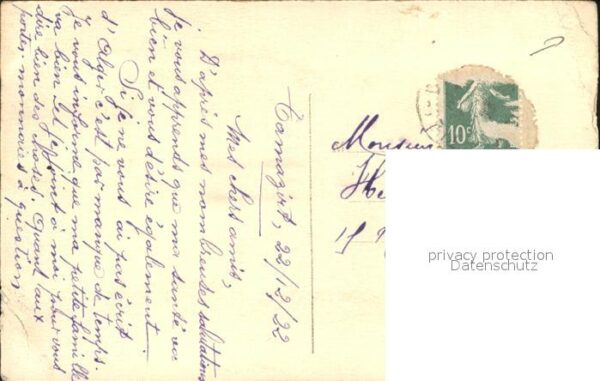 Tamazirt, 22/2/22
Mes chers amis,
D'après mes nombreuses salutations
je vous apprends que ma santé va
bien et vous désire également.
Si je ne vous ai pas écrit
d'Alger c'est par manque de temps.
Je vous informe que ma petite famille
va bien et se joint à moi pour vous
dire bien des choses. Quant aux
portes-monnaies à question
Monsieur
10c
privacy protection
Datenschutz